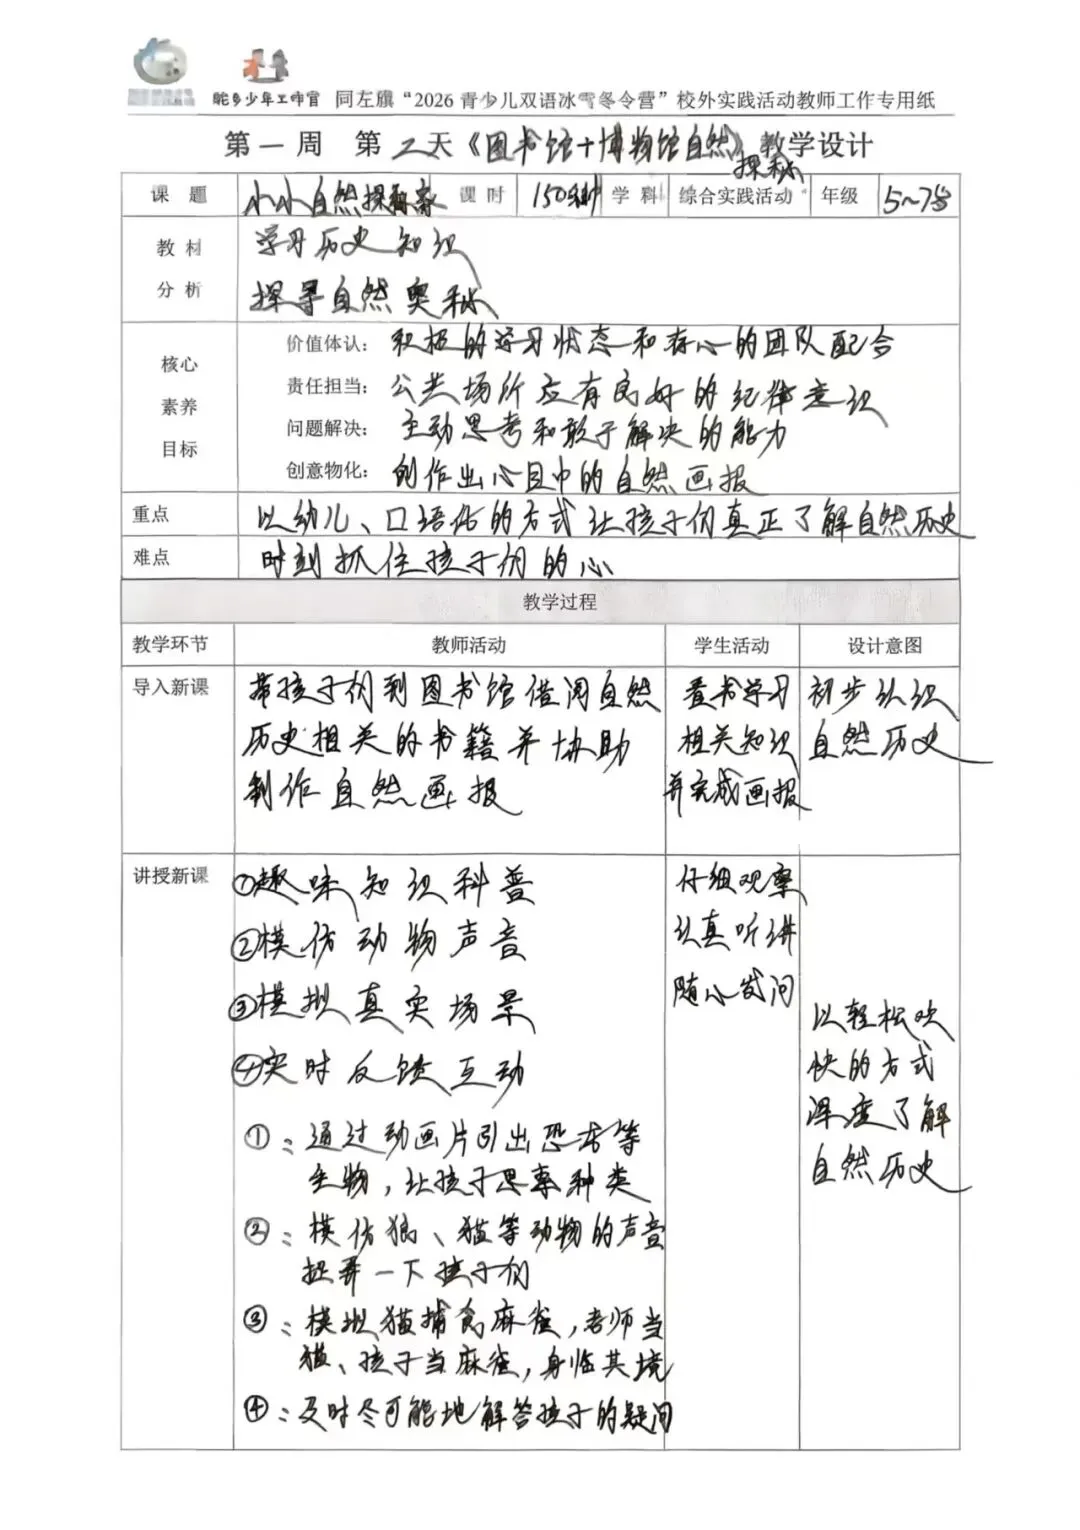 驼乡少年工作室 阿左旗“2026青少儿双语冰雪冬令营”校外实践活动教师工作专用纸
第一周 第二天《图书馆+博物馆自然探秘》教学设计
课题 小小自然探秘家 课时 150分钟 学科 综合实践活动 年级 5~7岁
教材分析 学习历史知识
探寻自然奥秘
核心素养目标
价值体认：积极的学习状态和存心的团队配合
责任担当：公共场所应有良好的纪律意识
问题解决：主动思考和敢于解决的能力
创意物化：创作出心目中的自然画报
重点 以幼儿、口语化的方式让孩子们真正了解自然历史
难点 时刻抓住孩子们的心
教学过程
教学环节 教师活动 学生活动 设计意图
导入新课
带孩子们到图书馆借阅自然
历史相关的书籍并协助
制作自然画报
看书学习
相关知识
并完成画报
初步认识
自然历史
讲授新课
①趣味知识科普
②模仿动物声音
③模拟真实场景
④实时反馈互动
①：通过动画片引出恐龙等
生物，让孩子思索种类
②：模仿狼、猫等动物的声音
捉弄一下孩子们
③：模拟猫捕食麻雀，老师当
猫、孩子当麻雀，身临其境
④：及时尽可能地解答孩子的疑问
仔细观察
认真听讲
随心发问
以轻松欢
快的方式
深度了解
自然历史